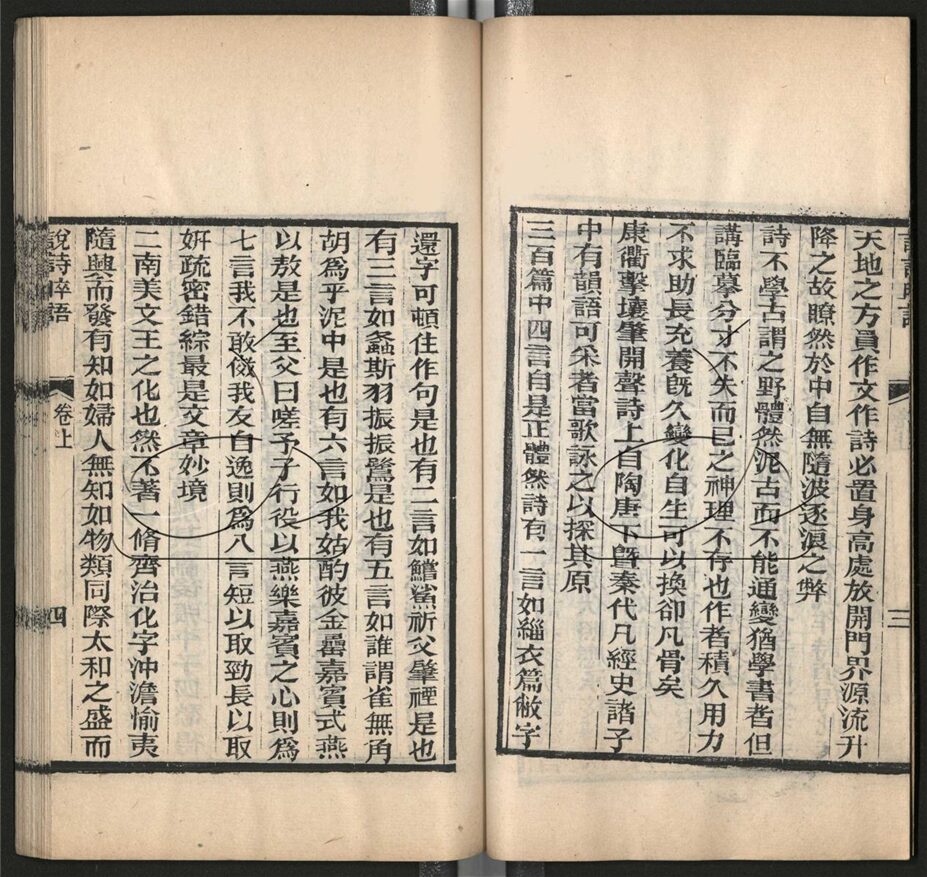 天地之方員作文作詩必置身高處放開門界源流升
降之故瞭然於中自無隨波逐浪之弊
詩不學古謂之野體然泥古而不能通變猶學書者但
講臨摹分寸不失而己之神理不存也作者積久用力
不求助長充養旣久變化自生可以換卻凡骨矣
康衢擊壤肇開聲詩上自陶唐下曁秦代凡經史諸子
中有韻語可采者當歌詠之以探其原
三百篇中四言自是正體然詩有一言如緇衣篇敝字
三
還字可頓住作句是也有二言如鱨鯊祈父肇禋是也
有三言如螽斯羽振振鷺是也有五言如誰謂雀無角
胡爲乎泥中是也有六言如我姑酌彼金罍嘉賓式燕
以敖是也至父曰嗟予子行役以燕樂嘉賓之心則爲
七言我不敢傚我友自逸則爲八言短以取勁長以取
姸疏密錯綜最是文章妙境
二南美文王之化也然不著一脩齊治化字沖澹愉夷
隨興而發有知如婦人無知如物類同際太和之盛而
說詩晬語
卷上
四